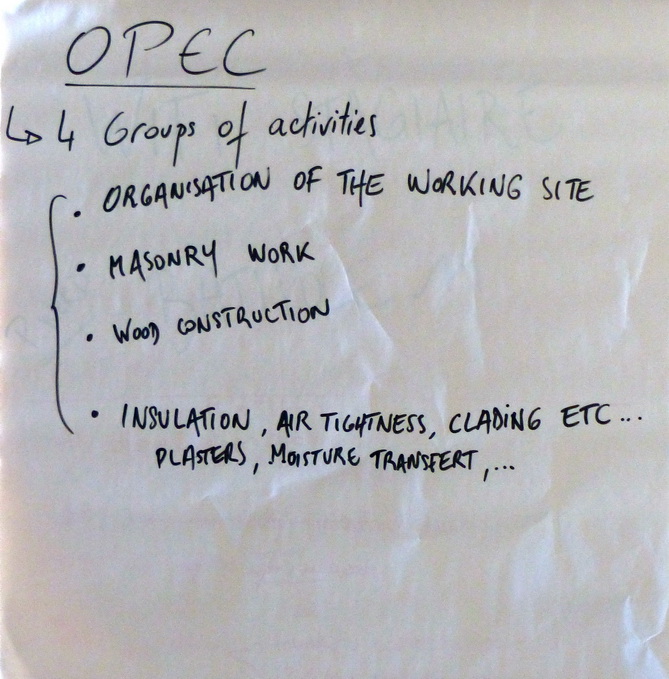 OPEC
↳ 4 Groups of activities
• ORGANISATION OF THE WORKING SITE
• MASONRY WORK
• WOOD CONSTRUCTION
• INSULATION, AIR TIGHTNESS, CLADING ETC...
PLASTERS, MOISTURE TRANSFERT,...